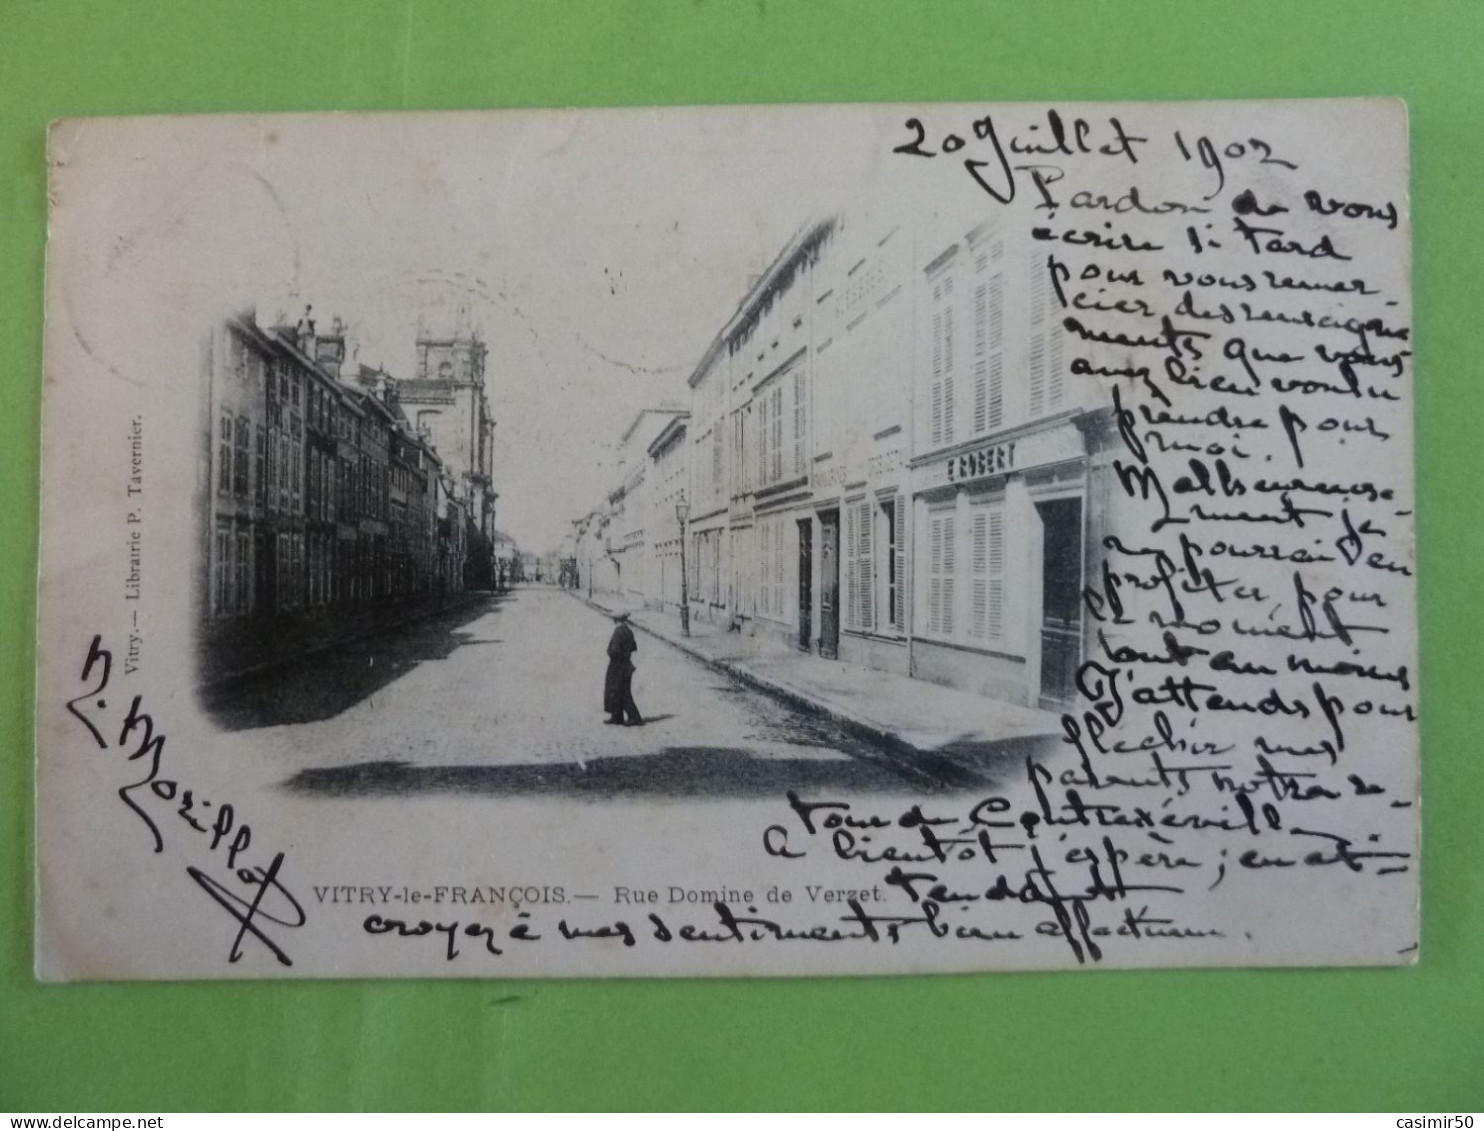 20 Juillet 1902
Pardon de vous
écrire si tard
pour vous remer-
cier des renseigne
ments que vous
avez bien voulu
prendre pour
moi.
Malheureuse-
ment je
ne pourrai en
profiter, pour
le moment
tout au moins
J'attends pour
fléchir mes
parents notre re-
tour de Contrexéville
A bientôt j'espère ; en at-
tendant
croyez à mes sentiments bien affectueux.
Vitry. — Librairie P. Tavernier.
E. ROBERT
VITRY-le-FRANÇOIS. — Rue Domine de Verzet.
casimir50